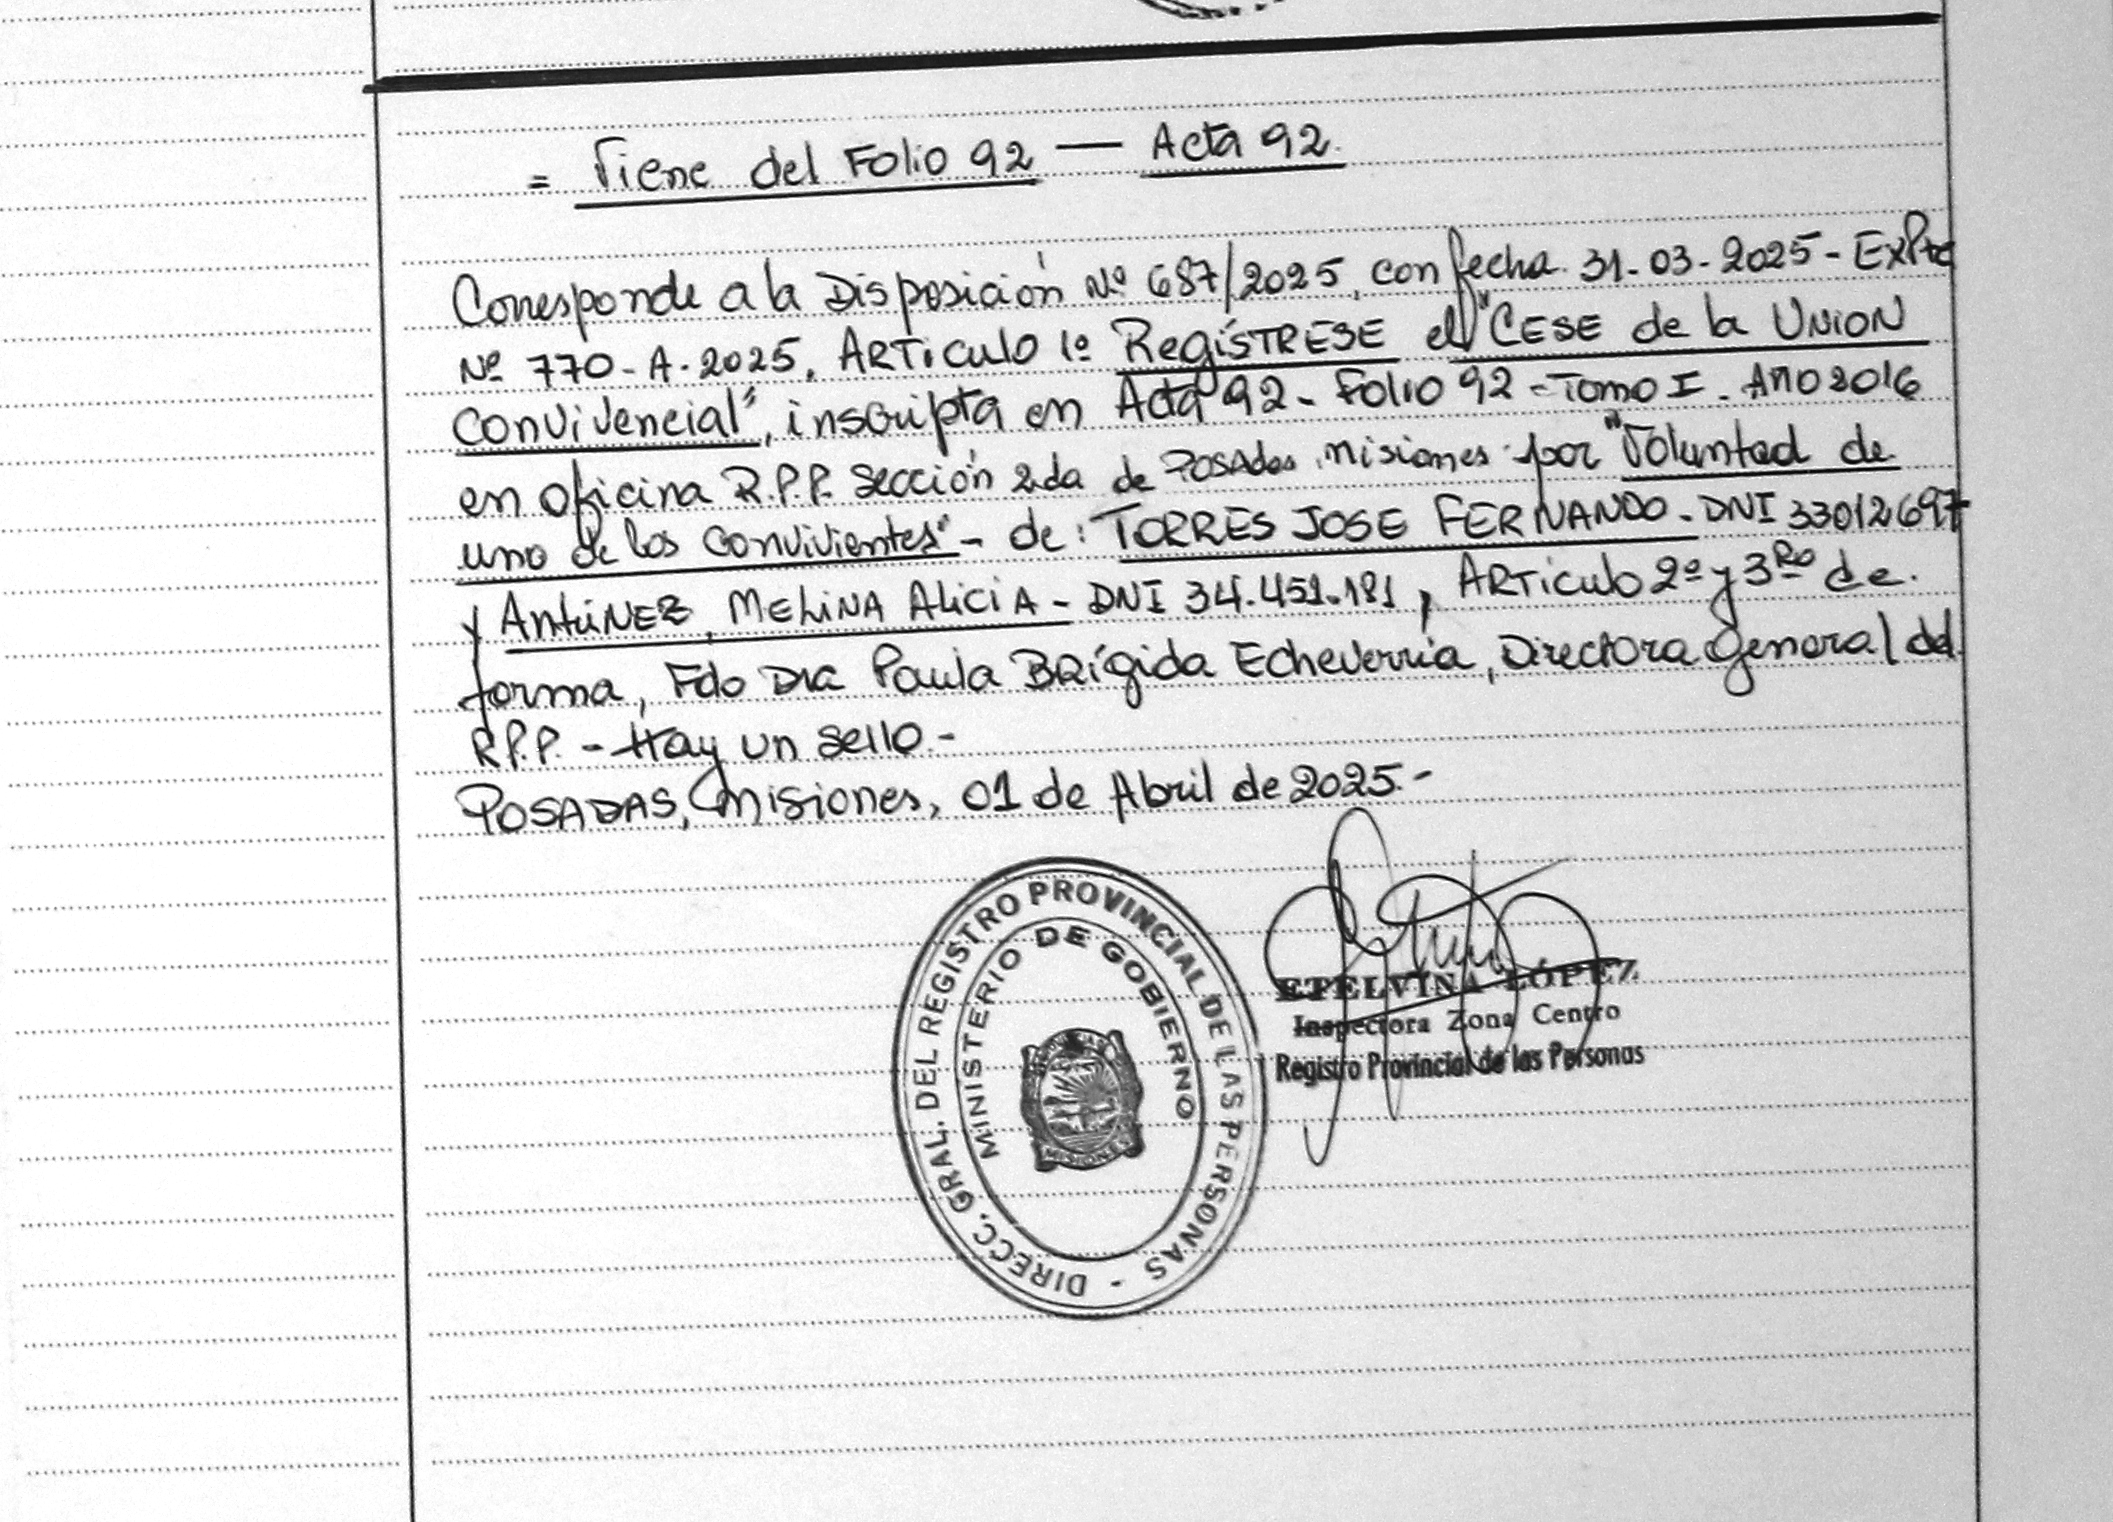 = Viene del Folio 92 — Acta 92.
Corresponde a la Disposición Nº 687/2025, con fecha 31-03-2025 - Expte
Nº 770-A-2025, ARTiculo 1º RegíSTRESE el "CESE de la UNION
Convivencial", inscripta en Acta 92 - Folio 92 - Tomo I - AÑO 2016
en oficina R.P.P. Sección 2da de Posadas, Misiones por "Voluntad de
uno de los Convivientes" - de: TORRES JOSE FERNANDO - DNI 33012697
y AntúNEZ, MELiNA AliciA - DNI 34.451.181, ARTiculo 2º y 3Ro de
forma, Fdo Dra Paula BRígida Echeverria, Directora General del
R.P.P. - Hay un sello.-
POSADAS, Misiones, 01 de Abril de 2025.-
DIRECC. GRAL. DEL REGISTRO PROVINCIAL DE LAS PERSONAS -
MINISTERIO DE GOBIERNO
MISIONES
ETELVINA LÓPEZ
Inspectora Zona Centro
Registro Provincial de las Personas